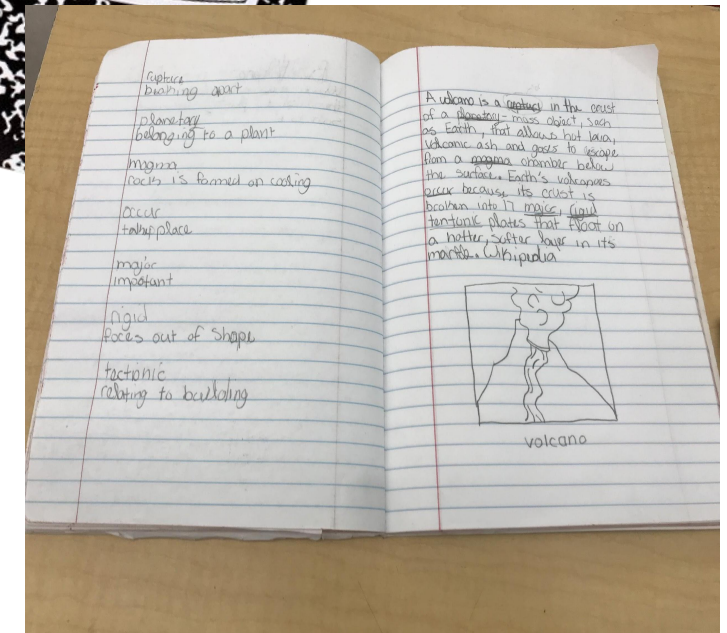 rupture
breaking apart
planetary
belonging to a plant
magma
rocks is formed on cooling
occur
take place
major
impotant
rigid
foces out of shape
tectonic
relating to building
A volcano is a rupture in the crust
of a planetary-mass object, such
as Earth, that allows hot lava,
volcanic ash and gases to escape
from a magma chamber below
the surface. Earth's volcanoes
occur because its crust is
broken into 17 major, rigid
tentonic plates that float on
a hotter, softer layer in its
mantle. Wikipedia
volcano